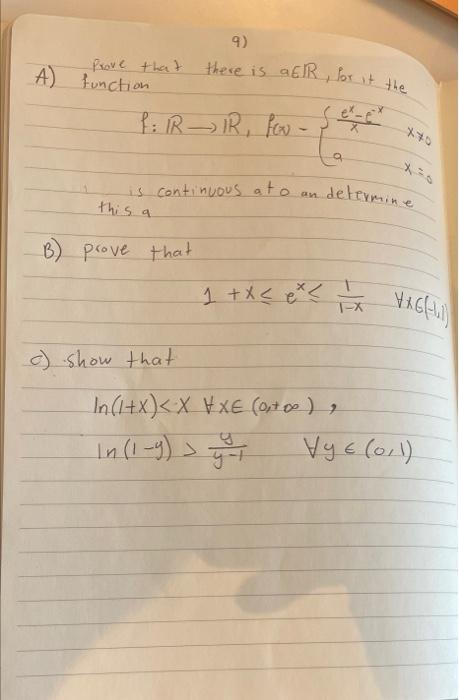 9)
A) Prove that there is a∈ℝ, for it the
function
f: ℝ → ℝ, f(x) - { (e^x - e^-x)/x x≠0
a x=0
is continuous at 0 an determine
this a
B) prove that
1 + x ≤ e^x ≤ 1/(1-x) ∀x∈(-1,1)
c) show that
ln(1+x) < x ∀x∈ (0,+∞) ,
ln(1-y) > y/(y-1) ∀y ∈ (0,1)